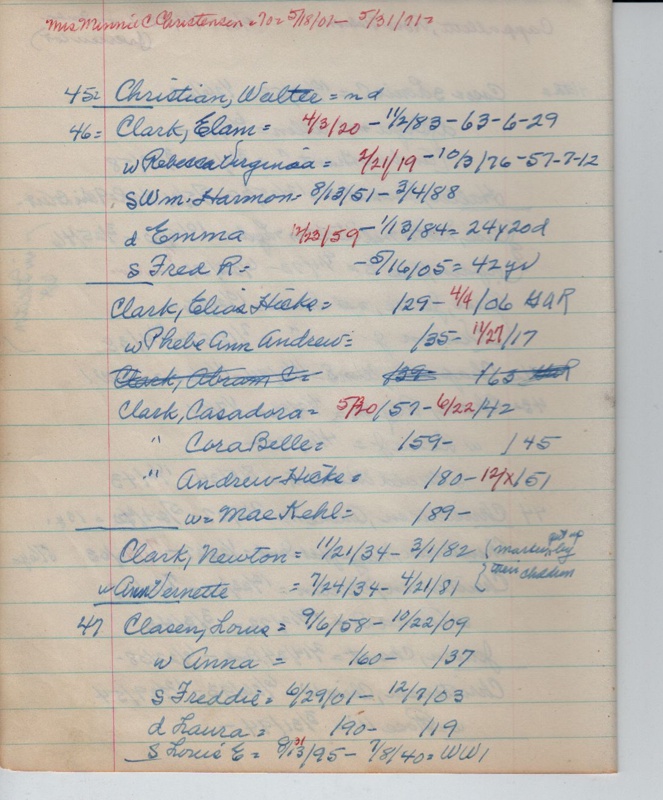 Mrs Minnie C Christensen = 70 = 5/18/01 - 5/31/71 =
45 = Christian, Walter = nd
46 = Clark, Elam = 4/3/20 - 11/2/83 - 63-6-29
w Rebecca Virginia = 2/21/19 - 10/3/76 - 57-7-12
s Wm. Harmon - 8/13/51 - 3/4/88
d Emma 12/23/59 - 1/13/84 = 24y20d
s Fred R = - 5/16/05 = 42 yr
Clark, Elias Hicks = /29 - 4/4/06 GAR
w Phebe Ann Andrew = /35 - 11/27/17
Clark, Abram C = /39 = /63 GAR
Clark, Casadora = 5/30/57 - 6/22/42
" Cora Belle = /59 - /45
" Andrew Hicks = /80 - 12/x/51
w = Mae Kehl = /89 -
Clark, Newton = 11/21/34 - 3/1/82 (markers put up by
w Ann Vernette = 7/24/34 - 4/21/81 their children
47 Clasen, Louis = 9/6/58 - 10/22/09
w Anna = /60 - /37
s Freddie = 6/29/01 - 12/7/03
d Laura = /90 - /19
s Louis E = 8/13/95 - 7/8/40 = WW1